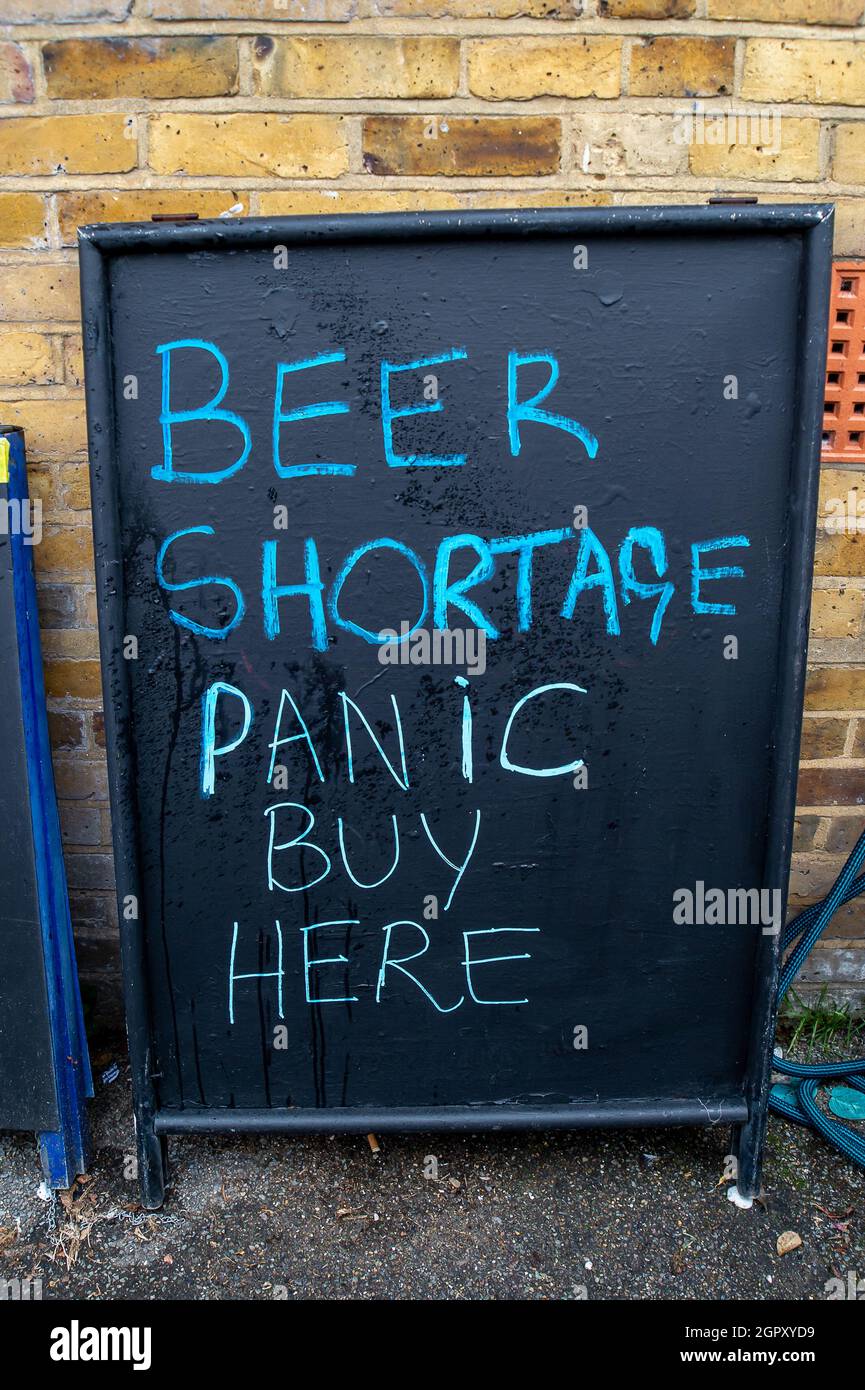 BEER
SHORTAGE
PANiC
BUY
HERE
alamy
Image ID: 2GPXYD9
www.alamy.com